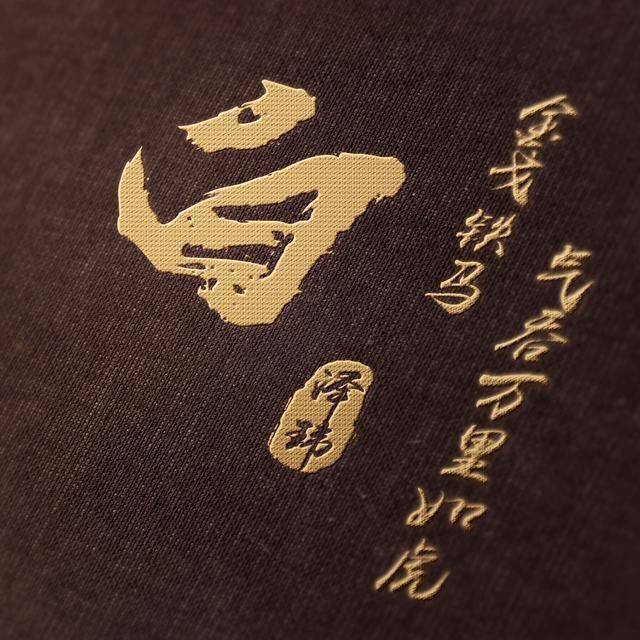 白
泽玮
金戈铁马
气吞万里如虎